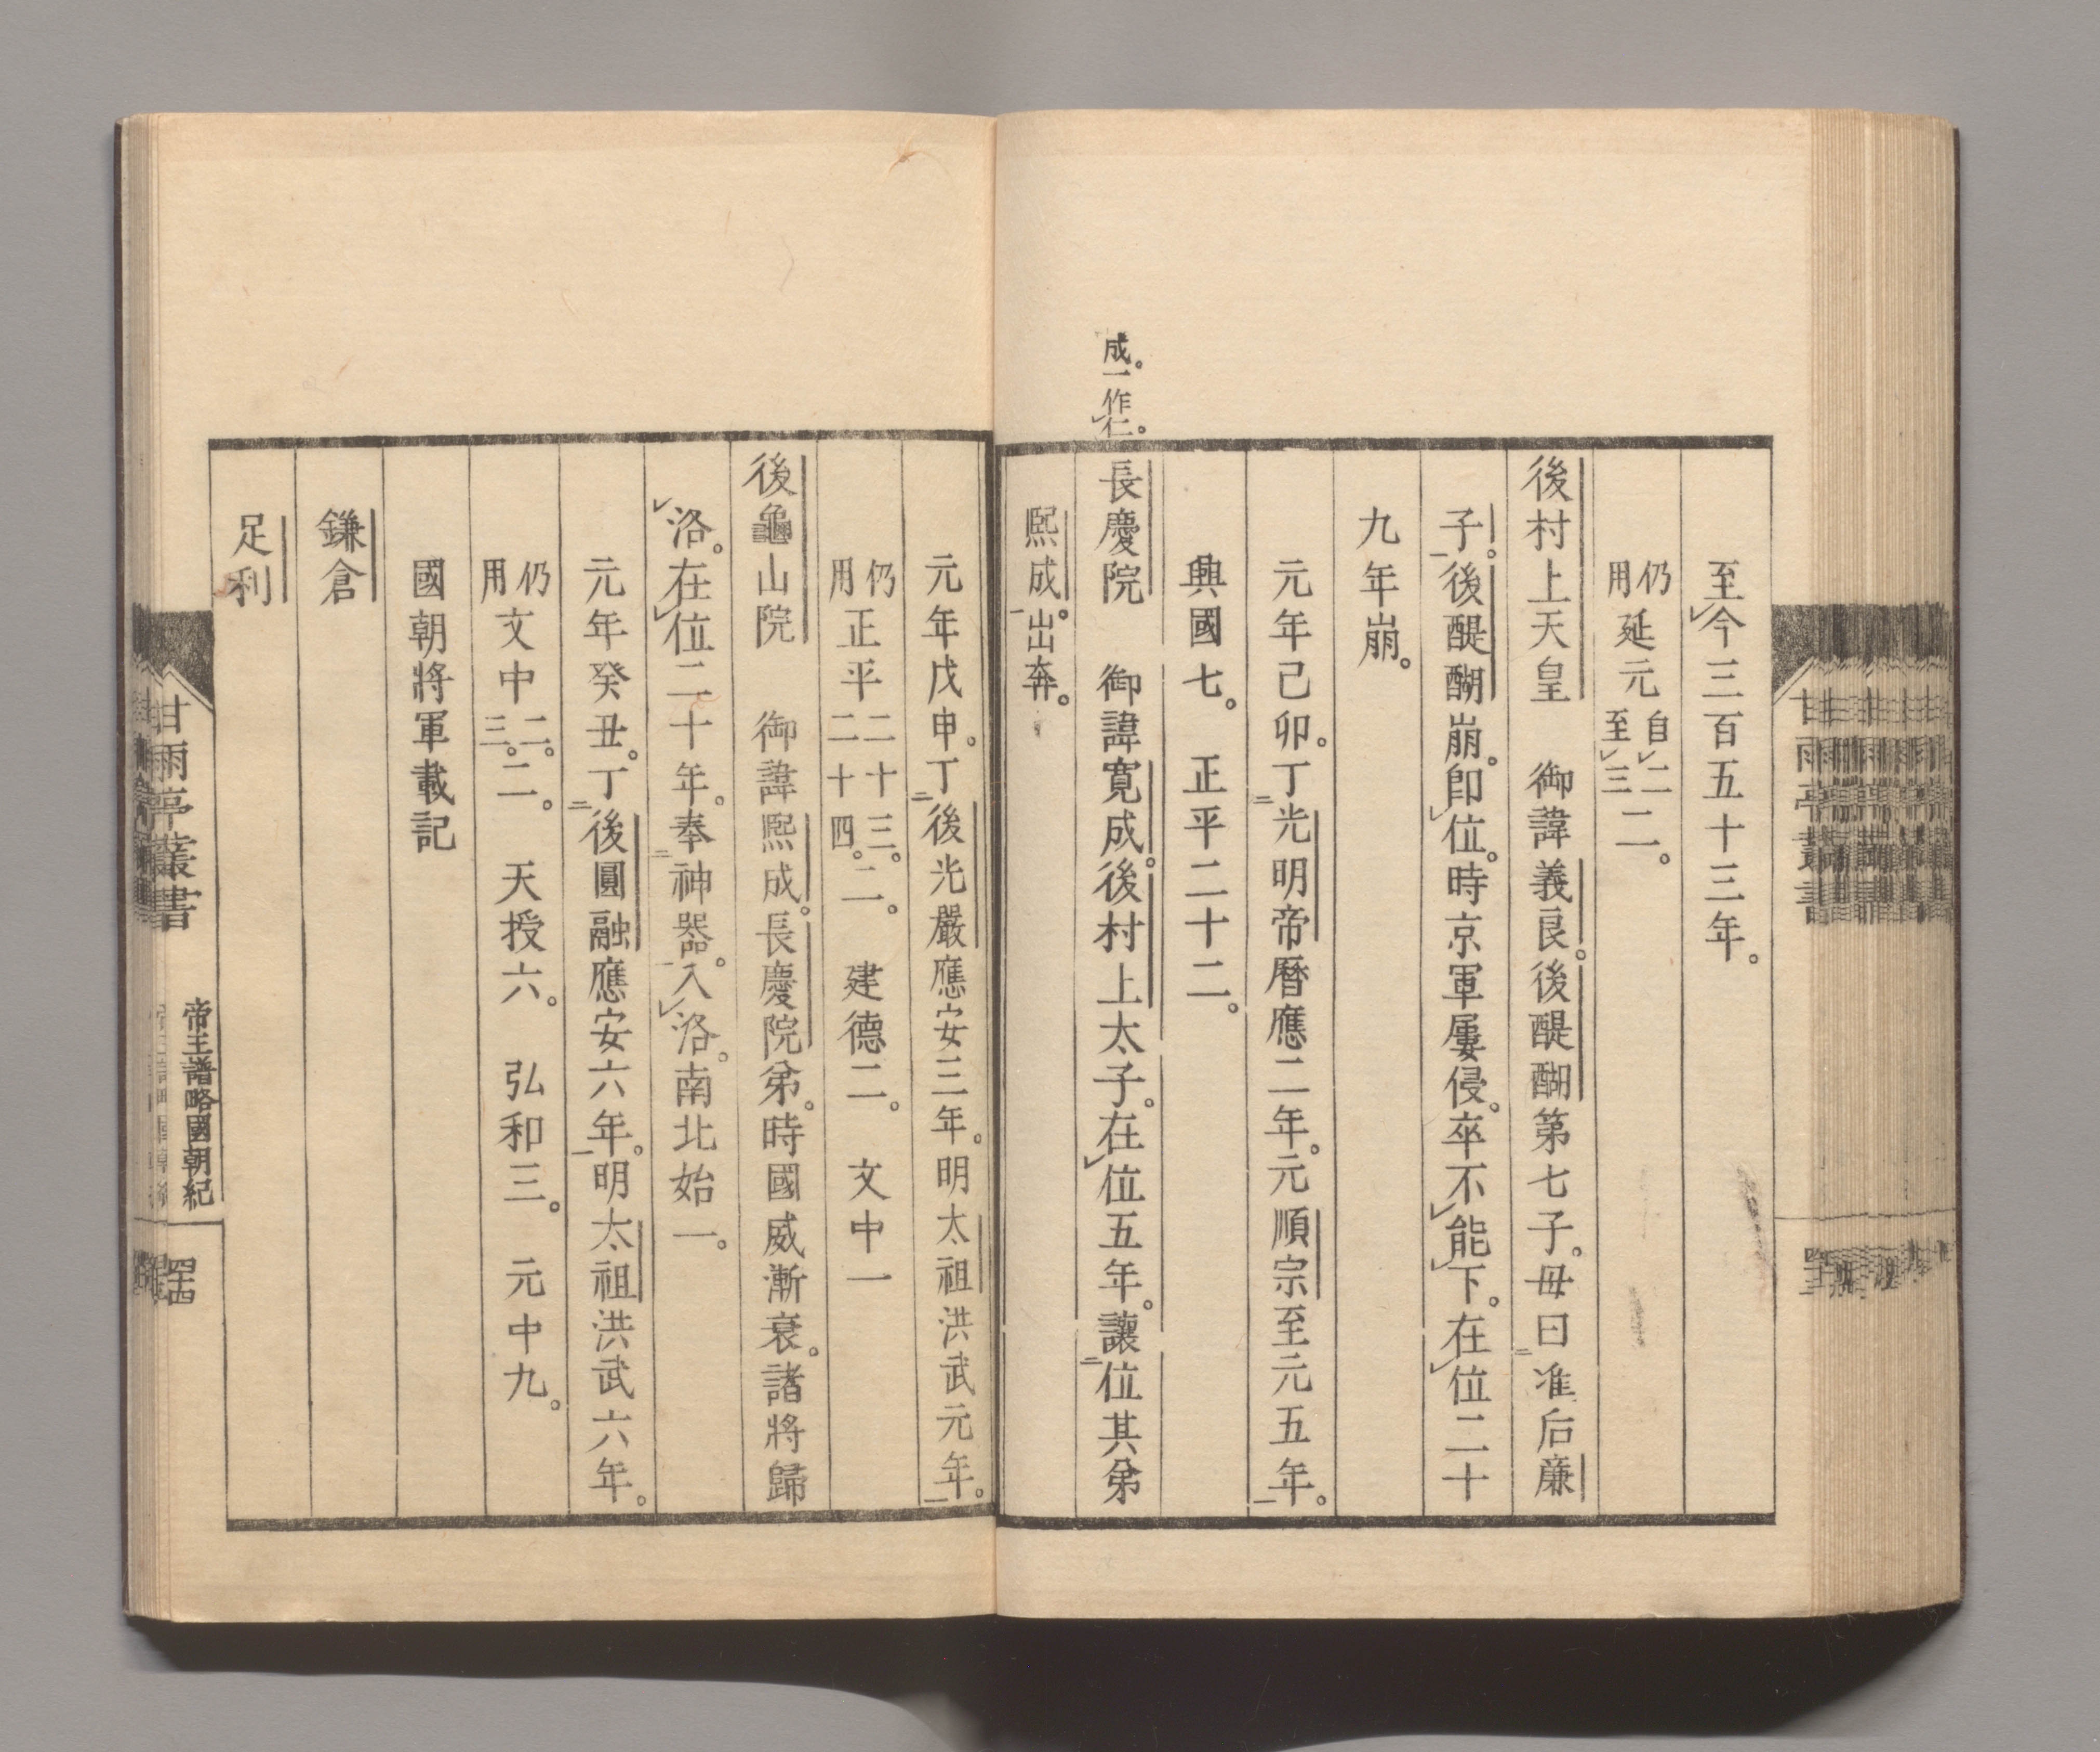 至今三百五十三年。
仍用延元自二至三二。
後村上天皇　御諱義良。後醍醐第七子。母曰准后廉
子。後醍醐崩。卽位。時京軍屢侵。卒不能下。在位二十
九年崩。
元年己卯。丁光明帝曆應二年。元順宗至元五年。
興國七。　正平二十二。
成。一作仁。
長慶院　御諱寬成。後村上太子。在位五年。讓位其弟
熙成。出奔。
元年戊申。丁後光嚴應安三年。明太祖洪武元年。
仍用正平二十三。二十四。二。　建德二。　文中一
後龜山院　御諱熙成。長慶院弟。時國威漸衰。諸將歸
洛。在位二十年。奉神器。入洛。南北始一。
元年癸丑。丁後圓融應安六年。明太祖洪武六年。
仍用文中二。三。二。　天授六。　弘和三。　元中九。
國朝將軍載記
鎌倉
足利
甘雨亭叢書
帝王譜略國朝紀
四十四
甘雨亭叢書